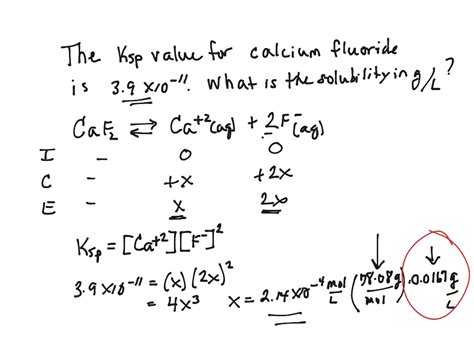 The Ksp value for calcium fluoride
is 3.9 x10⁻¹¹. What is the solubility in g/L?
CaF₂ ⇌ Ca⁺²(aq) + 2F⁻(aq)
I – 0 0
C – +x +2x
E – x 2x
Ksp = [Ca⁺²][F⁻]²
3.9x10⁻¹¹ = (x)(2x)²
= 4x³ x = 2.14x10⁻⁴ mol/L (78.08g/mol) .0.0167g/L